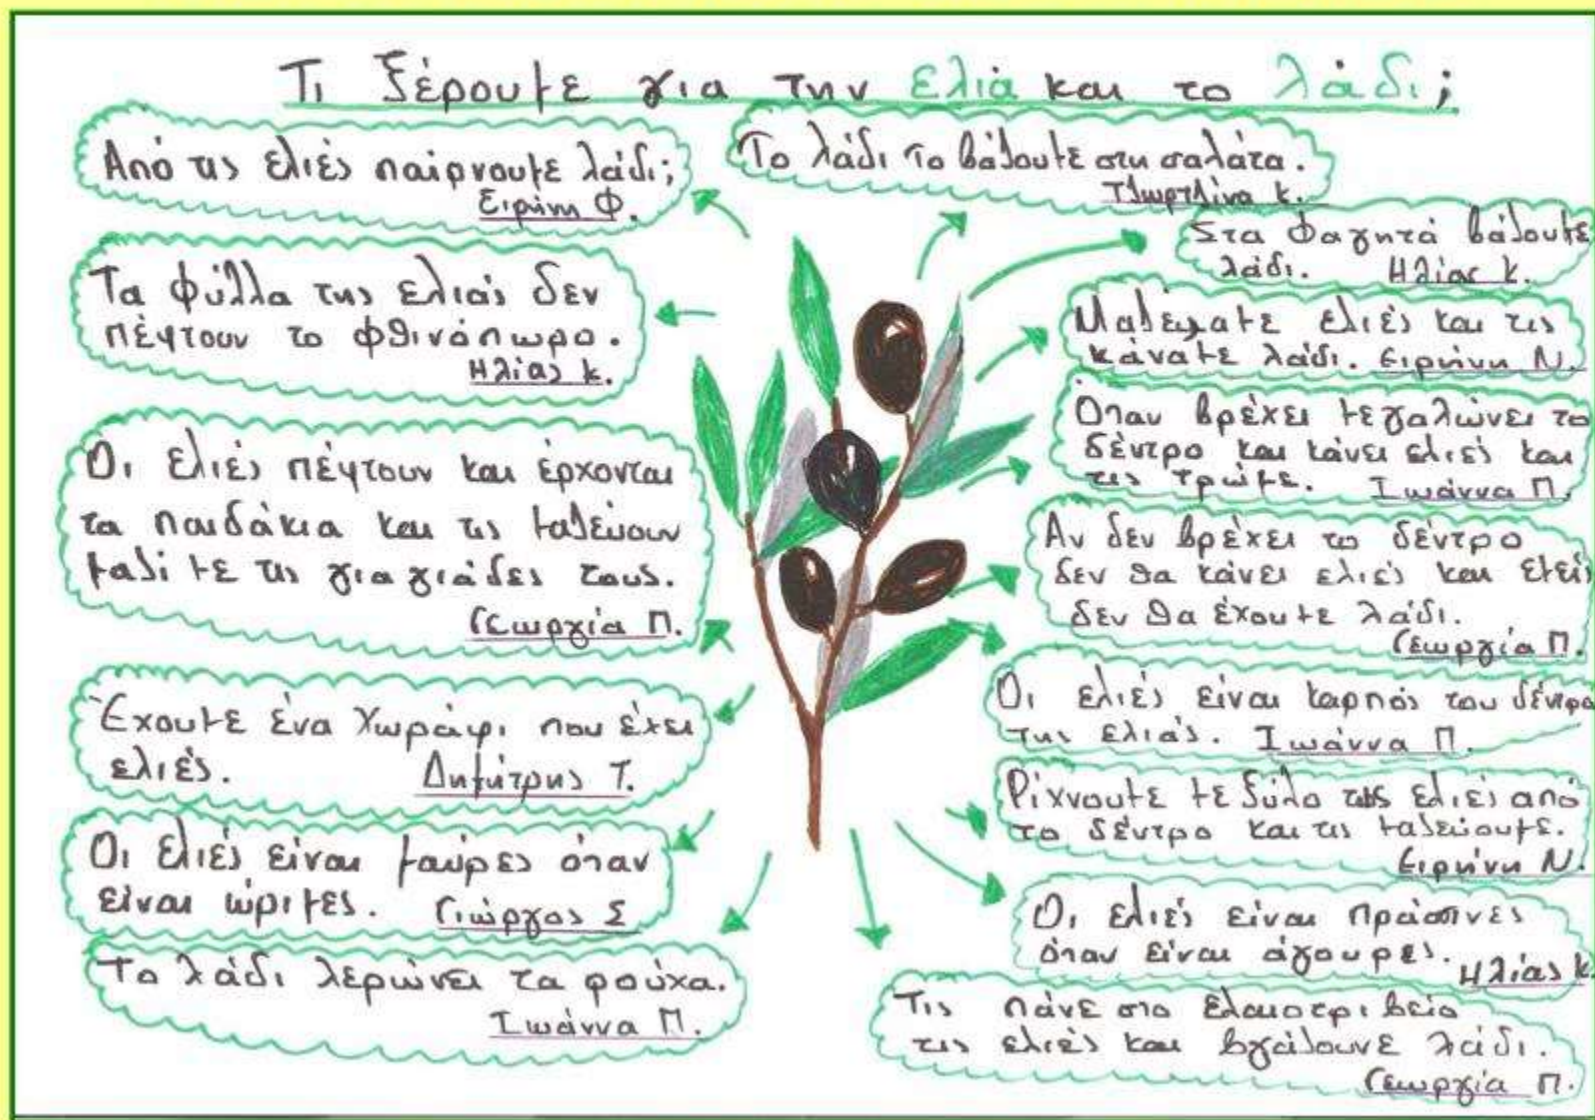 Τι ξέρουμε για την ελιά και το λάδι;
Από τις ελιές παίρνουμε λάδι;
Ειρήνη Φ.
Τα φύλλα της ελιάς δεν
πέφτουν το φθινόπωρο.
Ηλίας Κ.
Οι ελιές πέφτουν και έρχονται
τα παιδάκια και τις μαζεύουν
μαζί με τις γιαγιάδες τους.
Γεωργία Π.
Έχουμε ένα χωράφι που έχει
ελιές. Δημήτρης Τ.
Οι ελιές είναι μαύρες όταν
είναι ώριμες. Γιώργος Σ
Το λάδι λερώνει τα ρούχα.
Ιωάννα Π.
Το λάδι το βάζουμε στη σαλάτα.
Τζωρτζίνα Κ.
Στα φαγητά βάζουμε
λάδι. Ηλίας Κ.
Μαζέψαμε ελιές και τις
κάναμε λάδι. Ειρήνη Ν.
Όταν βρέχει μεγαλώνει το
δέντρο και κάνει ελιές και
τις τρώμε. Ιωάννα Π.
Αν δεν βρέχει το δέντρο
δεν θα κάνει ελιές και εμείς
δεν θα έχουμε λάδι.
Γεωργία Π.
Οι ελιές είναι καρπός του δέντρο
της ελιάς. Ιωάννα Π.
Ρίχνουμε με ξύλο τις ελιές από
το δέντρο και τις μαζεύουμε.
Ειρήνη Ν.
Οι ελιές είναι πράσινες
όταν είναι άγουρες.
Ηλίας Κ.
Τις πάνε στο ελαιοτριβείο
τις ελιές και βγάζουνε λάδι.
Γεωργία Π.